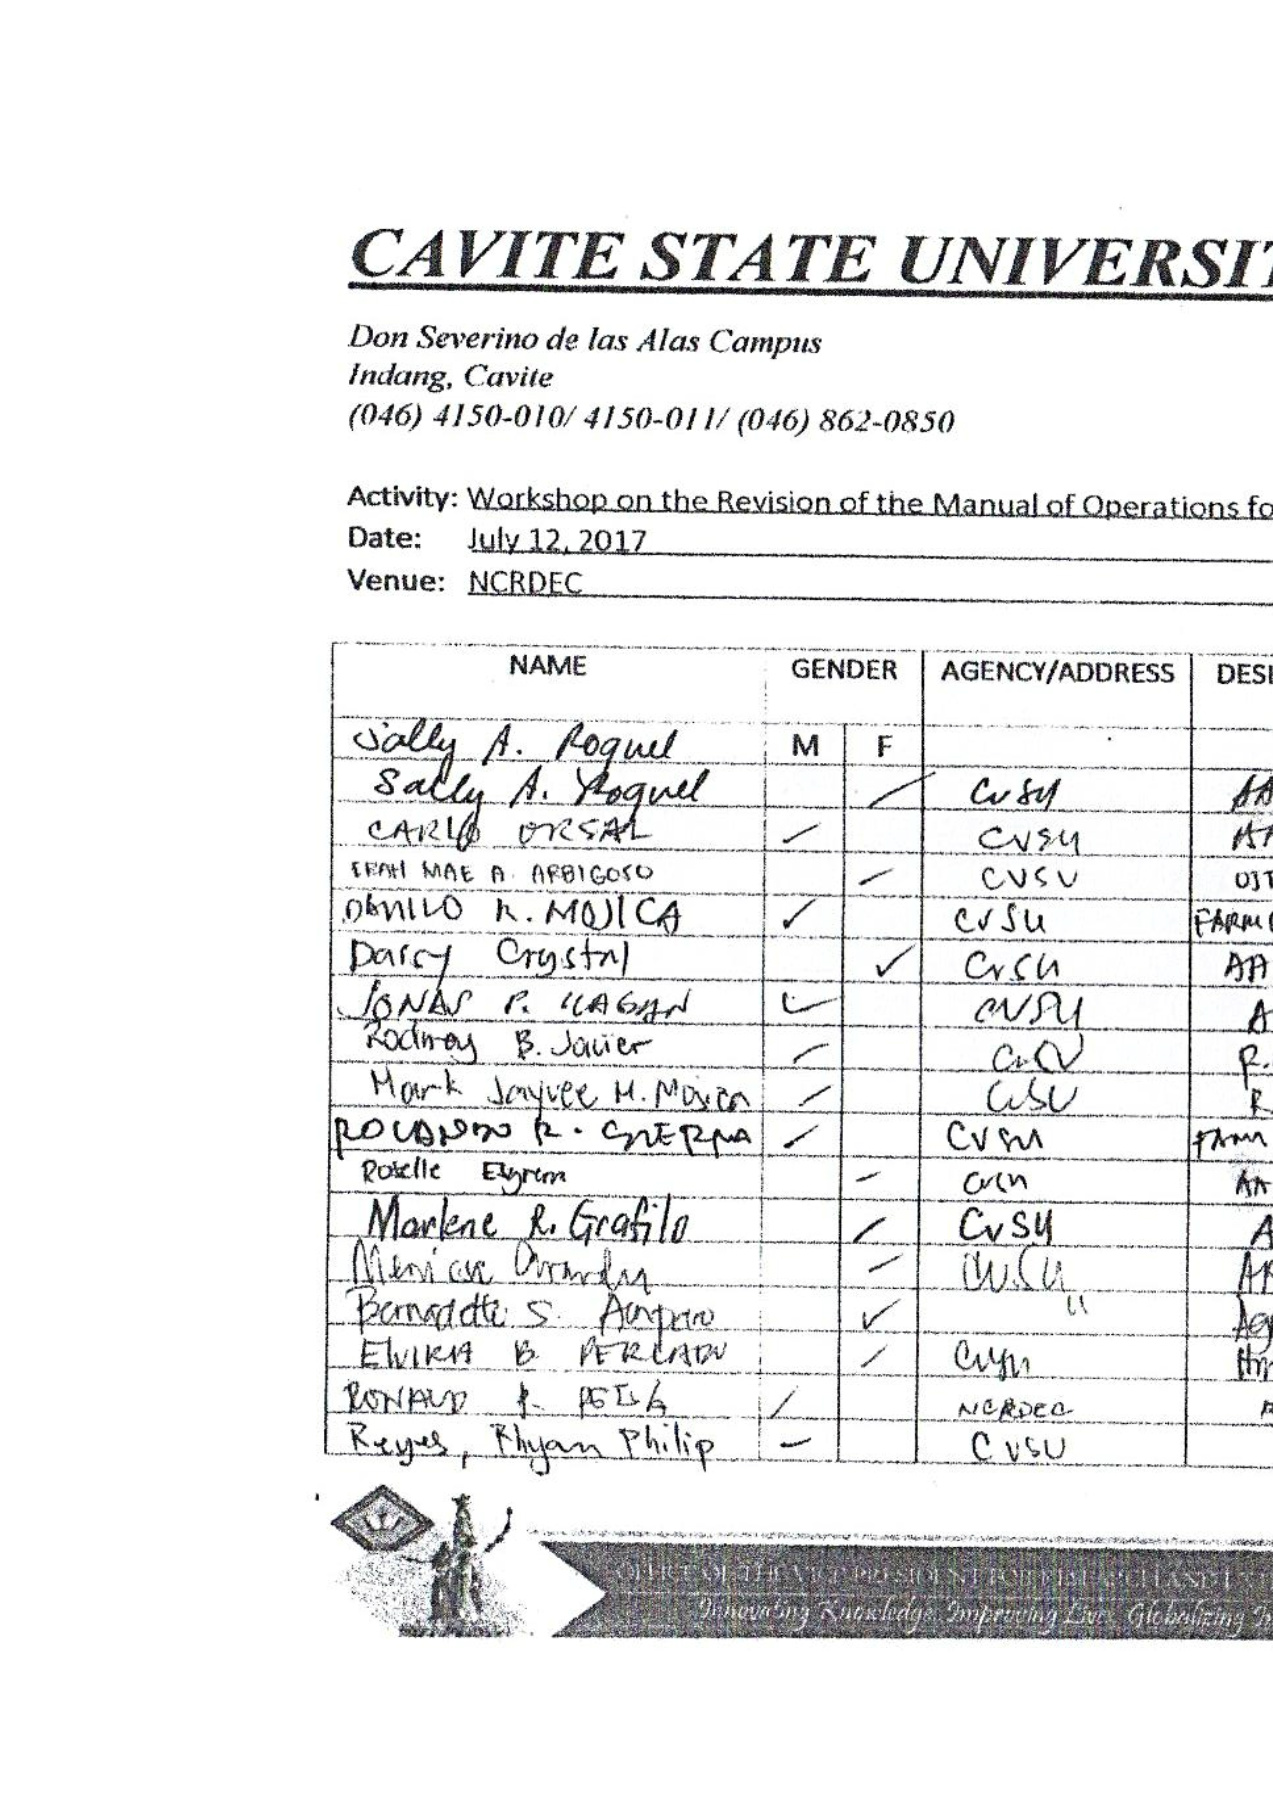 CAVITE STATE UNIVERSIT
Don Severino de las Alas Campus
Indang, Cavite
(046) 4150-010/ 4150-011/ (046) 862-0850
Activity: Workshop on the Revision of the Manual of Operations fo
Date: July 12, 2017
Venue: NCRDEC
NAME GENDER AGENCY/ADDRESS DESI
Sally A. Roquel M F
Sally A. Roquel CvSU AA
CARLO ORSAL CVSU
MAE A. ARBIGOSO CVSU OJT
DANILO R. MOJICA CVSU FARM
Darcy Crystal CvSU AA
JONAS P. ILAGAN CVSU A
Rodney B. Javier R.
Mark Jayvee M. Mojica CvSU R
ROLANDO R. GUERRA CVSU FARM
Roselle AA
Marlene R. Grafilo CvSU A
CvSU
Bernadette S. Amparo "
ELVIRA B. PERLADO
RONALD NCRDEC
Reyes, Rhyan Philip CVSU
OFFICE OF THE VICE PRESIDENT FOR RESEARCH AND
Innovating Knowledge, Improving Lives, Globalizing